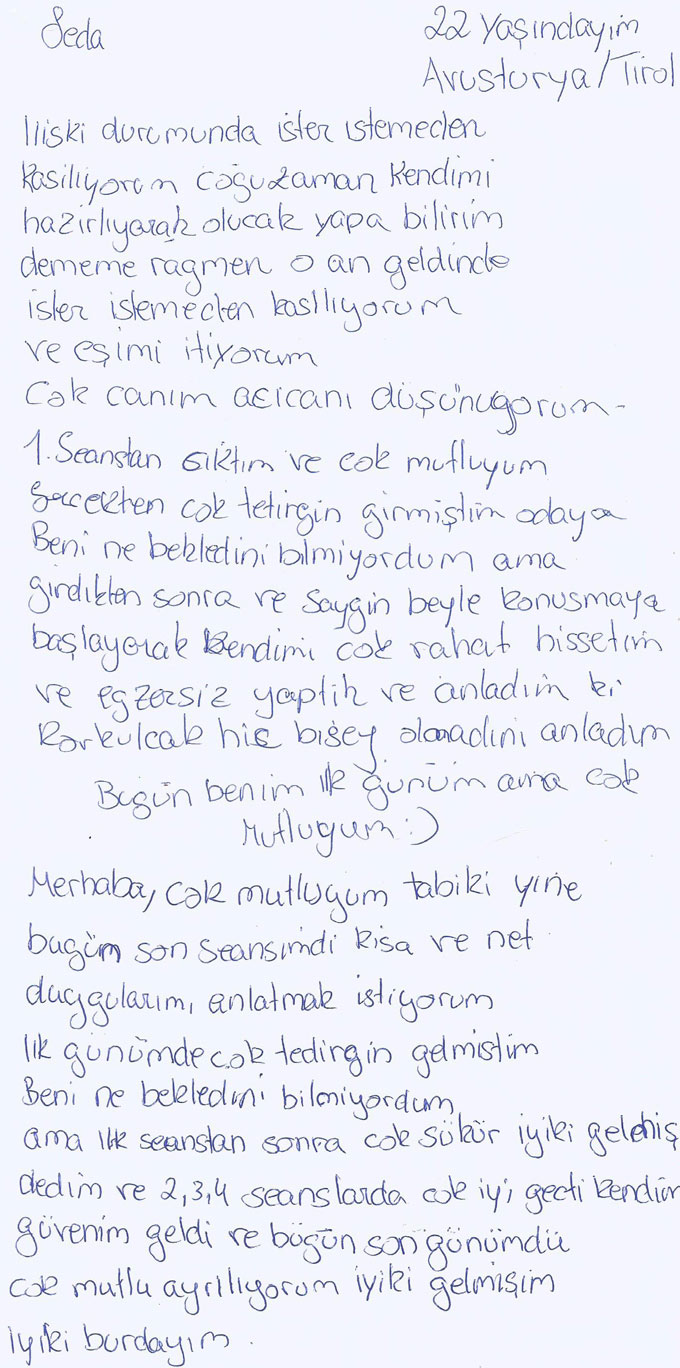 Seda
22 Yaşındayım
Avusturya/Tirol
Iliski durumunda ister istemeden
kasılıyorum coğuzaman kendimi
hazirlıyarak olucak yapa bilirim
dememe rağmen o an geldinde
ister istemeden kasılıyorum
ve eşimi itiyorum
Cok canım acıcanı düşünügorum -
1. Seanstan cıktım ve cok mutluyum
Gercekten cok tetirgin girmiştim odaya
Beni ne bekledini bilmiyordum ama
girdikten sonra ve Saygin beyle konusmaya
başlayarak kendimi cok rahat hissetim
ve egzersiz yaptik ve anladım ki
korkulcak hic bişey olmadıni anladım
Bugün benim ilk günüm ama cok
mutlugum :)
Merhaba, cok mutlugum tabiki yine
bugüm son seansımdi kisa ve net
duygularımı anlatmak istiyorum
Ilk günümde cok tedirgin gelmistim
Beni ne bekledini bilmiyordum
ama ilk seanstan sonra cok sükür iyiki gelmiş
dedim ve 2,3,4 seanslarda cok iyi gecti kendim
güvenim geldi ve bügün son günümdü
cok mutlu ayrılıyorum iyiki gelmişim
iyiki burdayım.